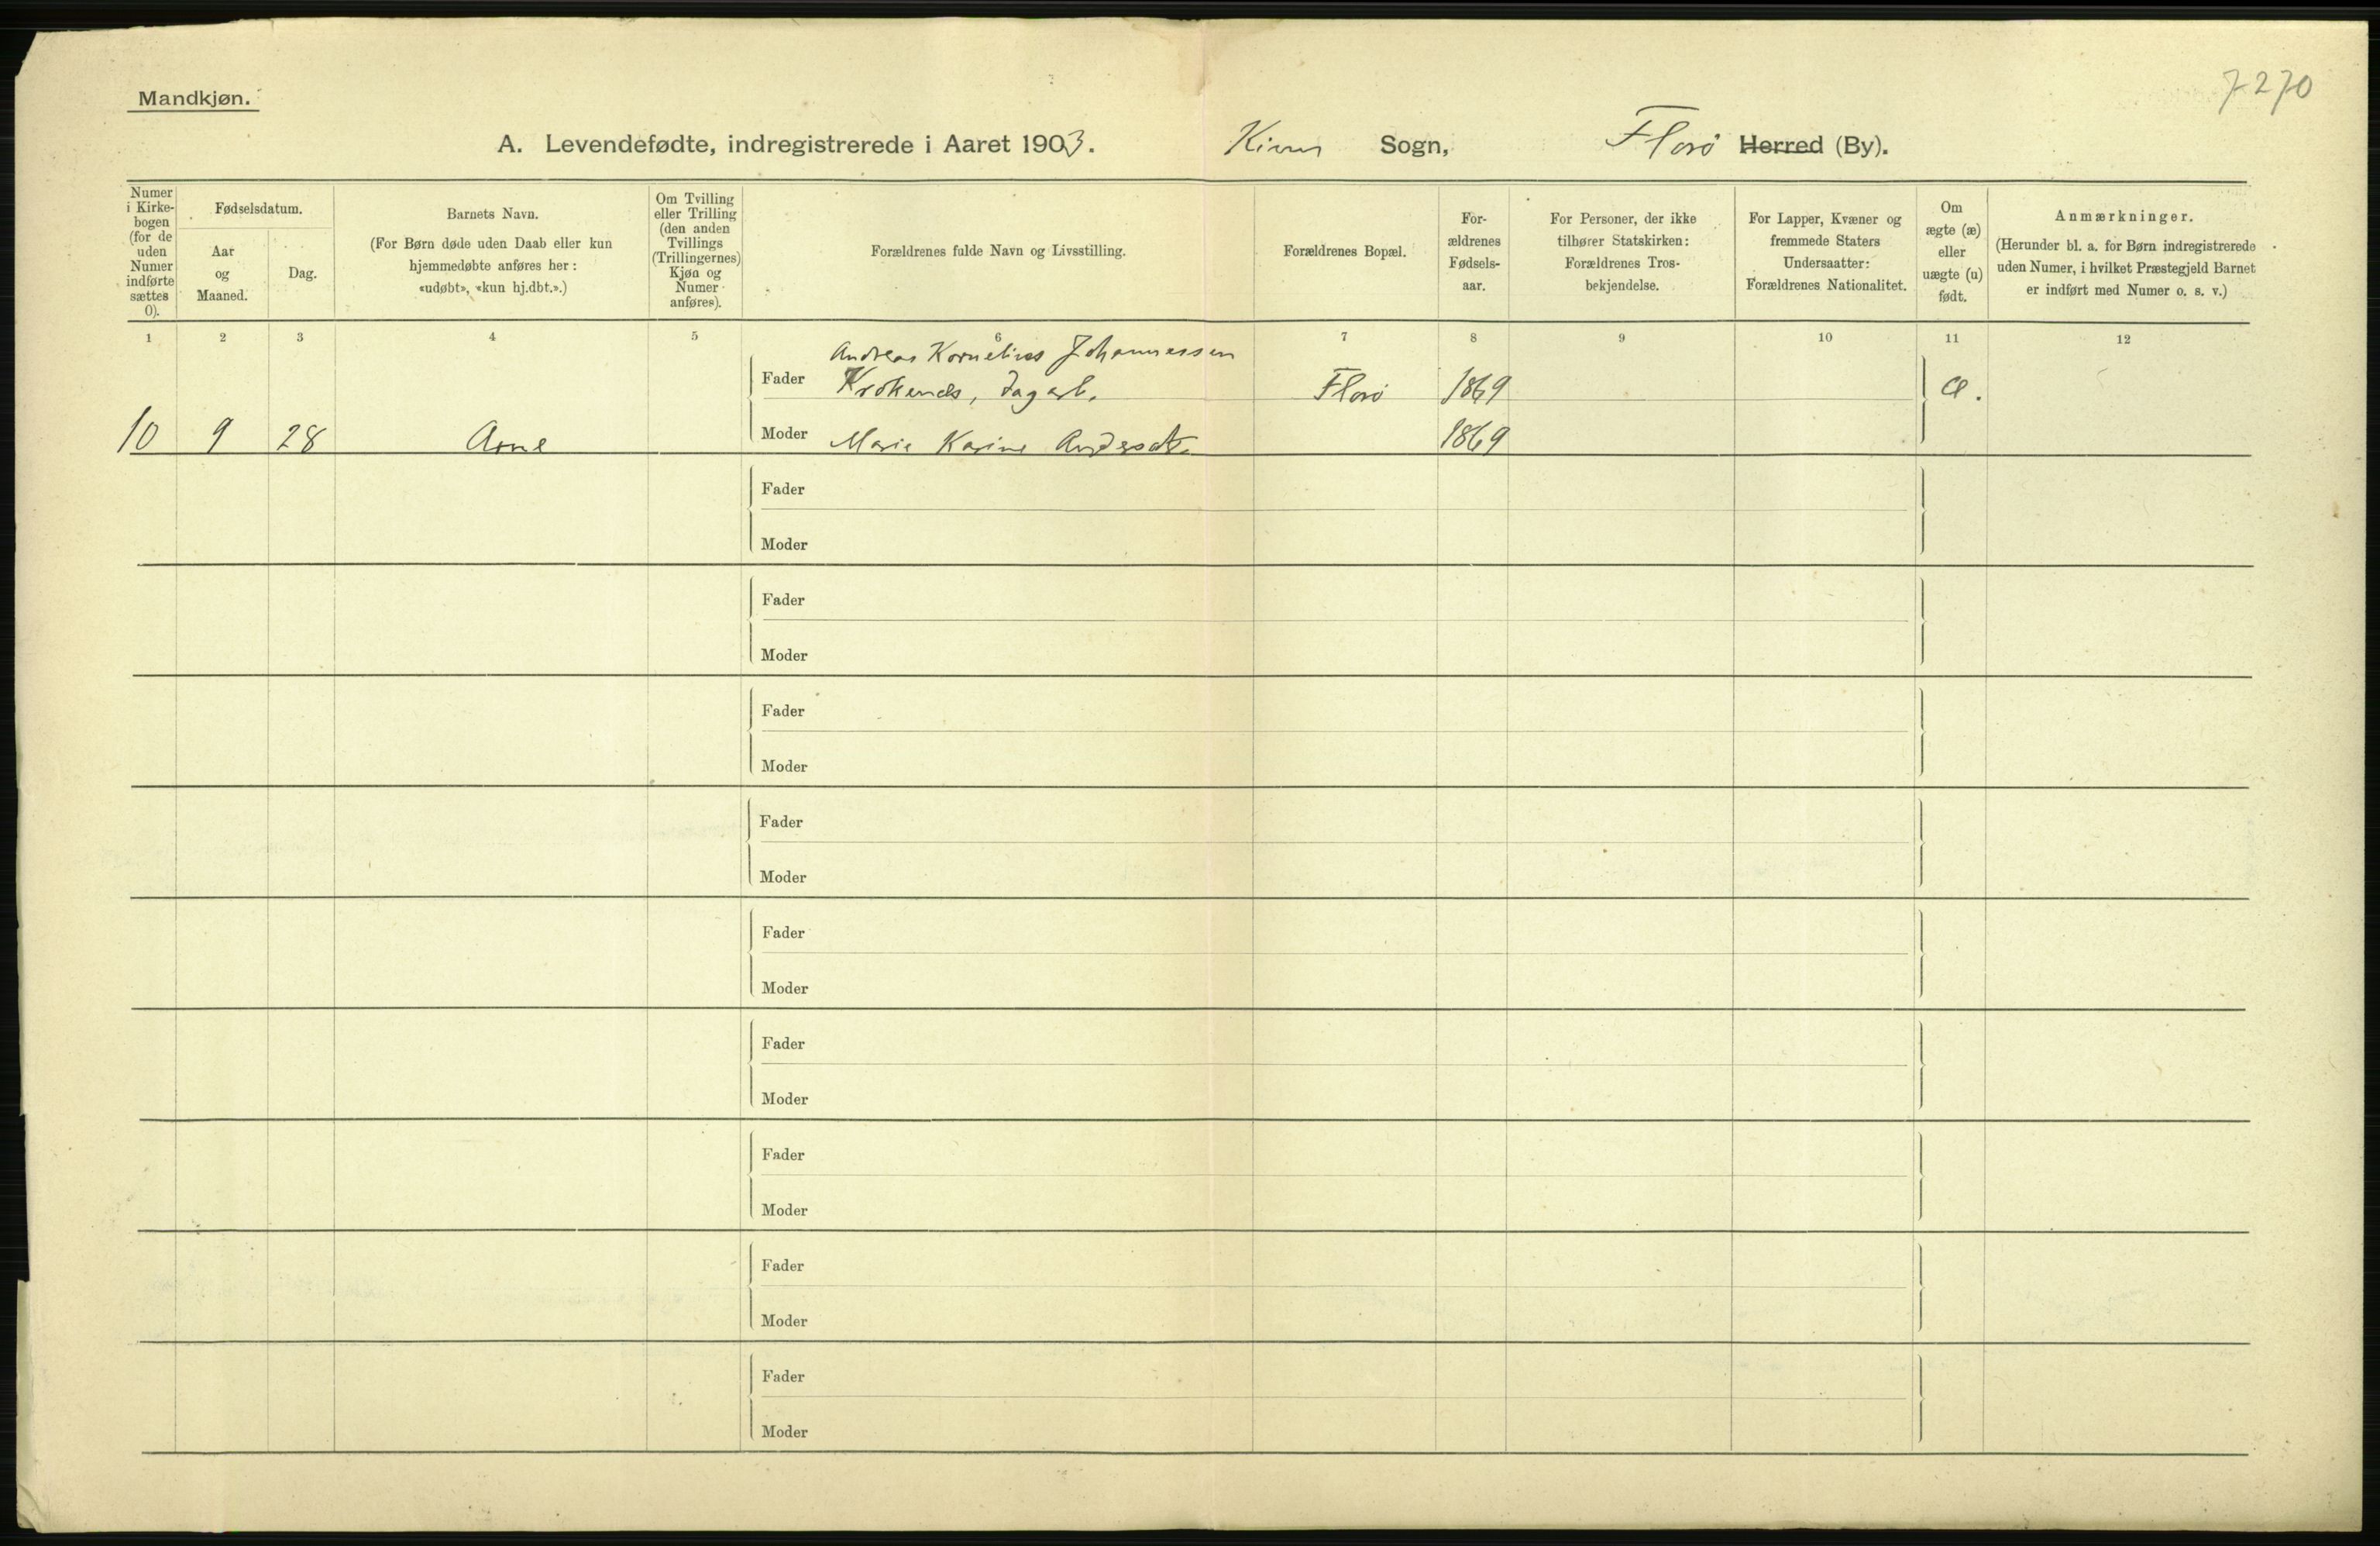 7270
Mandkjøn.
A. Levendefødte, indregistrerede i Aaret 1903. Kinn Sogn, Florø Herred (By).
Numer i Kirkebogen (for de uden Numer indførte sættes 0).
Fødselsdatum.
Aar og Maaned.
Dag.
Barnets Navn.
(For Børn døde uden Daab eller kun
hjemmedøbte anføres her:
«udøbt», «kun hj.dbt.».)
Om Tvilling
eller Trilling
(den anden
Tvillings
(Trillingernes)
Kjøn og
Numer
anføres).
Forældrenes fulde Navn og Livsstilling.
Forældrenes Bopæl.
For-
ældrenes
Fødsels-
aar.
For Personer, der ikke
tilhører Statskirken:
Forældrenes Tros-
bekjendelse.
For Lapper, Kvæner og
fremmede Staters
Undersaatter:
Forældrenes Nationalitet.
Om
ægte (æ)
eller
uægte (u)
født.
Anmærkninger.
(Herunder bl. a. for Børn indregistrerede
uden Numer, i hvilket Præstegjeld Barnet
er indført med Numer o. s. v.)
1 2 3 4 5 6 7 8 9 10 11 12
Andreas Kornelius Johannessen
Fader Krokenes, dagarb. Florø 1869 æ.
10 9 28 Arne Moder Marie Karine Andersdtr. 1869
Fader
Moder
Fader
Moder
Fader
Moder
Fader
Moder
Fader
Moder
Fader
Moder
Fader
Moder
Fader
Moder
Fader
Moder